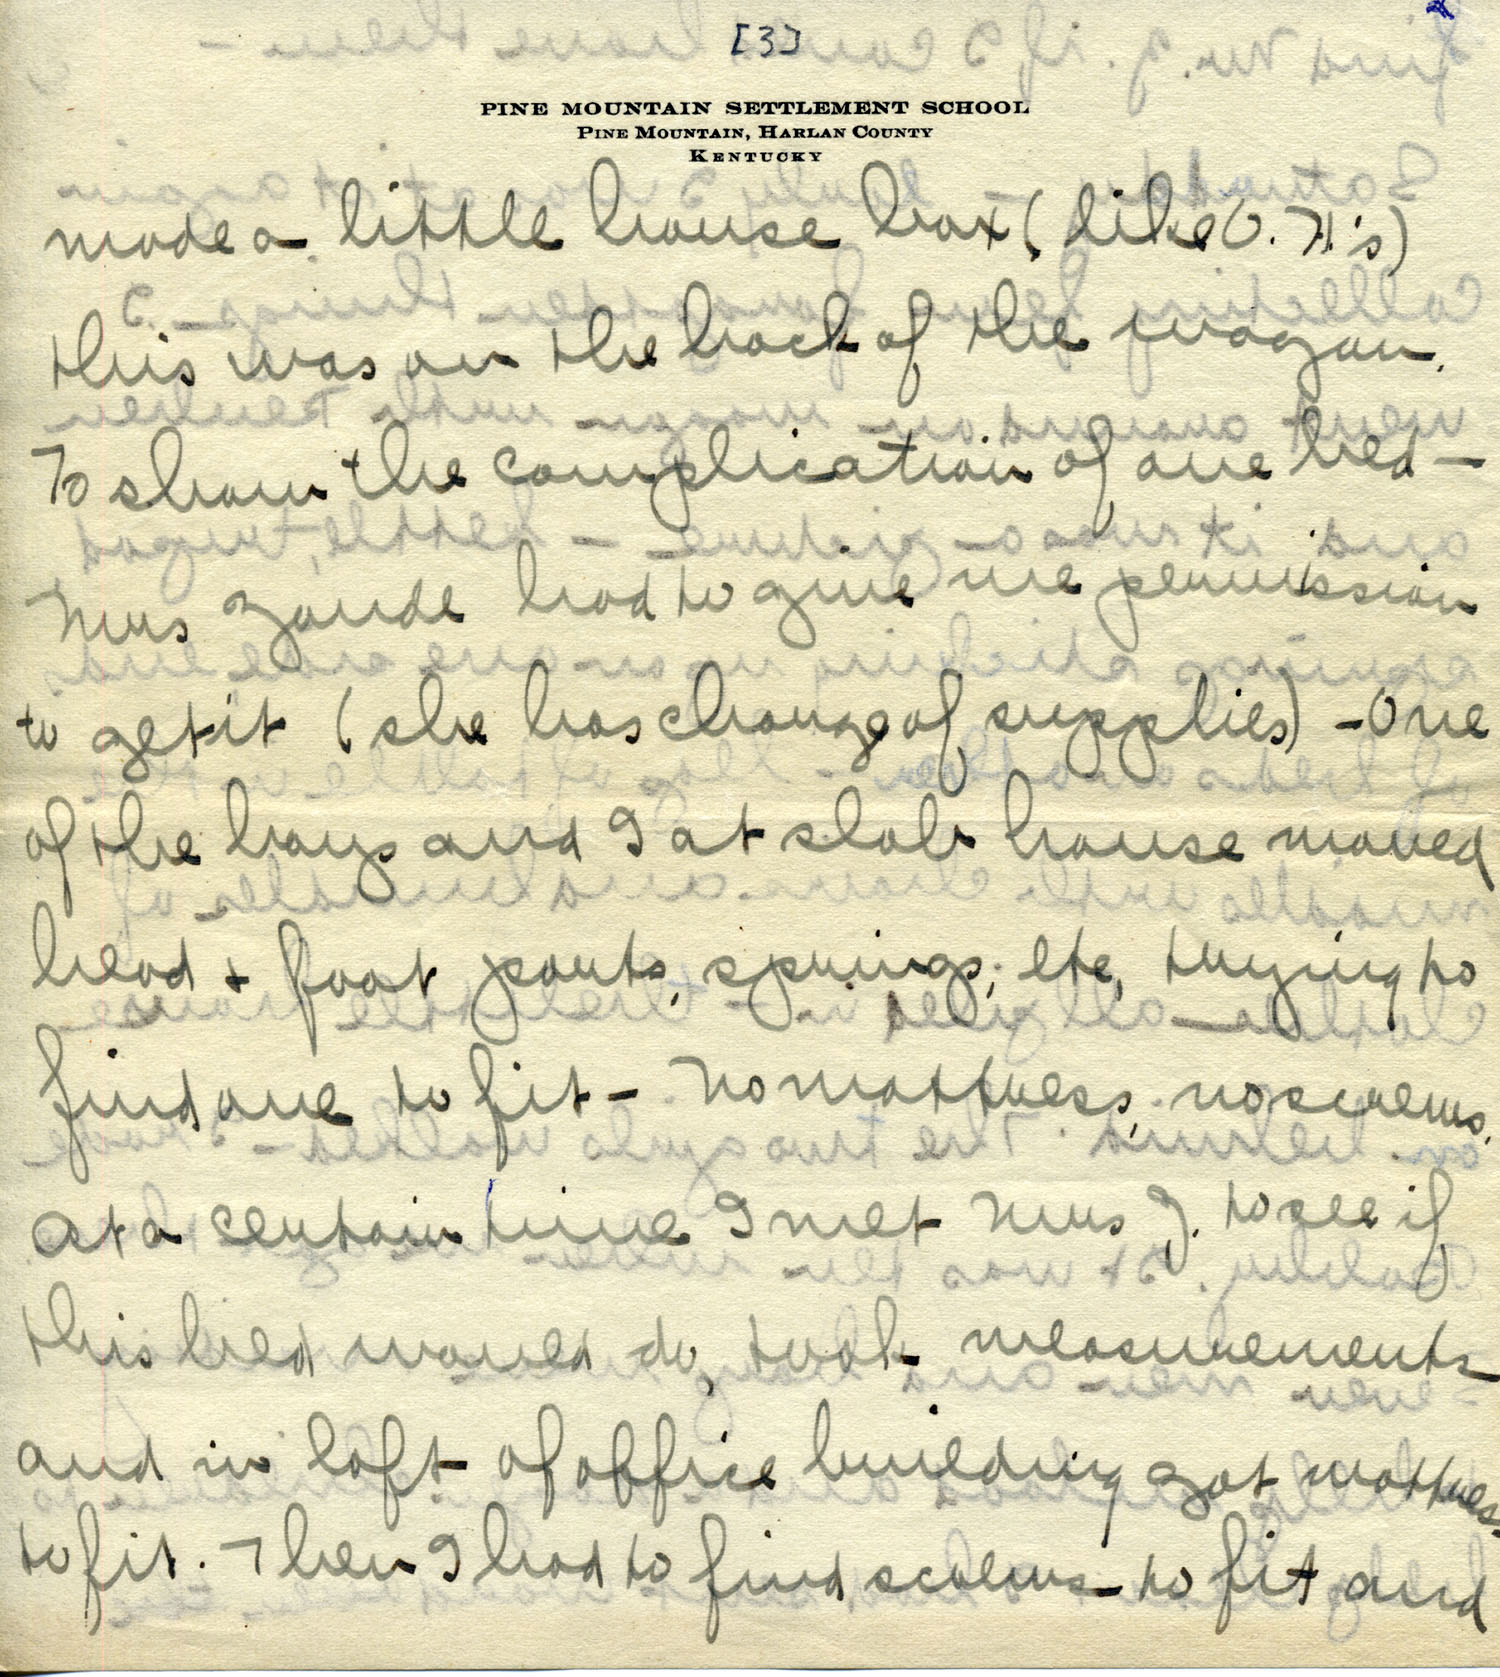 [3]
PINE MOUNTAIN SETTLEMENT SCHOOL
PINE MOUNTAIN, HARLAN COUNTY
KENTUCKY
made a little house box (like O. H.'s)
this was on the back of the wagon.
To show the complication of one bed —
Mrs Zande had to give me permission
to get it (she has charge of supplies) — One
of the boys and I at slab house moved
head + foot parts, springs, etc, trying to
find one to fit — No mattress, no screws,
at a certain time I met Mrs Z. to see if
this bed would do, took measurements
and in loft of office building got mattress
to fit. Then I had to find screws to fit and